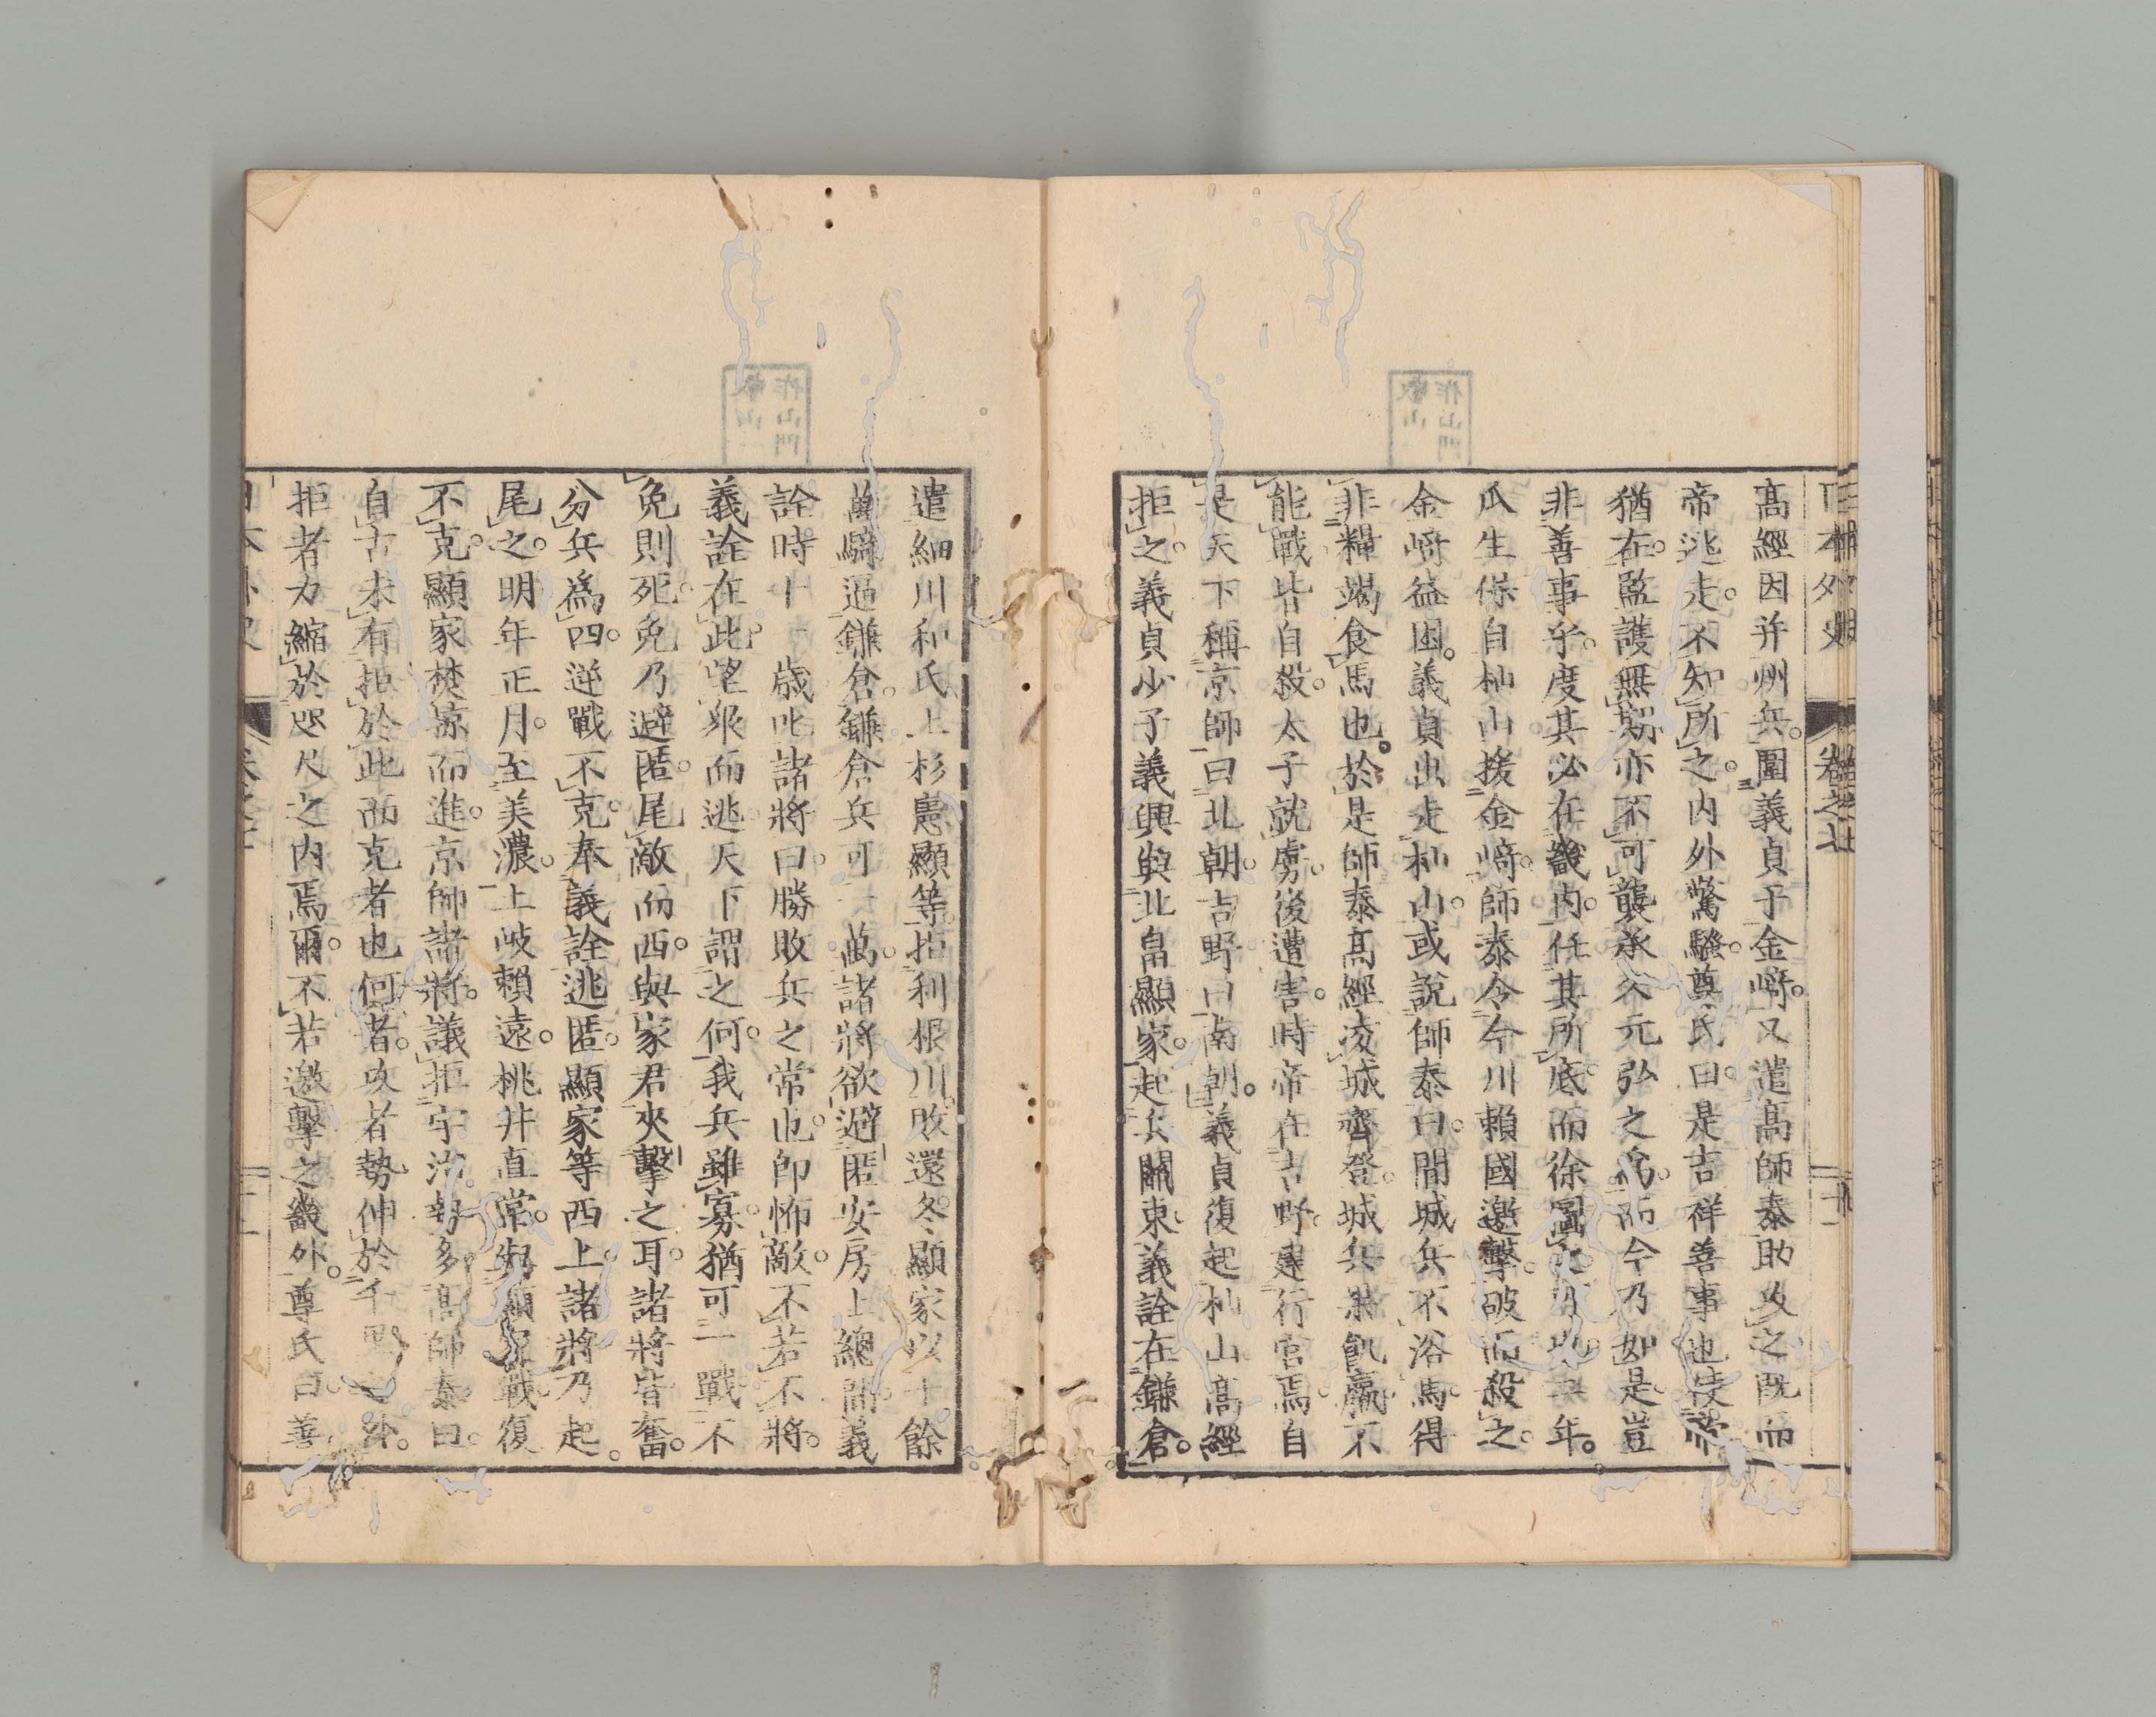 日本外史 卷之七
高經因并州兵。圍義貞于金﨑。又遣高師泰助攻之。既而
帝逃走。不知所之。内外驚騷。尊氏曰。是吉祥善事也。使帝
猶在。監護無期。亦不可襲承久元弘之爲。而今乃如是。豈
非善事乎。度其必在畿内。任其所底。而徐圖
年。
瓜生保自杣山援金﨑。師泰令今川賴國邀擊。破而殺之。
金﨑益困。義貞出走杣山。或説師泰曰。間城兵不浴馬。得
非糧竭食馬也。於是師泰高經凌城齊登。城兵飢羸不
能戰。皆自殺。太子就虜。後遭害。時帝在吉野。建行宮焉。自
是天下稱京師曰北朝。吉野曰南朝。義貞復起杣山。高經
拒之。義貞少子義興與北畠顯家。起兵關東。義詮在鎌倉。
遣細川和氏上杉憲顯等。拒利根川。敗還。冬。顯家以十餘
萬騎逼鎌倉。鎌倉兵可一萬。諸將欲避匿安房上總間。義
詮時十一歳。叱諸將曰。勝敗兵之常也。卽怖敵。不若不將。
義詮在此。望衆而逃。天下謂之何。我兵雖寡。猶可一戰。不
免則死。免乃避匿。尾敵而西。與家君夾擊之耳。諸將皆奮。
分兵爲四。逆戰不克。奉義詮逃匿。顯家等西上。諸將乃起。
尾之。明年正月。至美濃。土岐賴遠。桃井直常。與顯家戰。復
不克。顯家焚掠而進。京師諸將。議拒宇治勢多。高師泰曰。
自古未有拒於此而克者也。何者。攻者勢伸於千里之外。
拒者力縮於咫尺之内焉爾。不若邀擊之畿外。尊氏曰善。